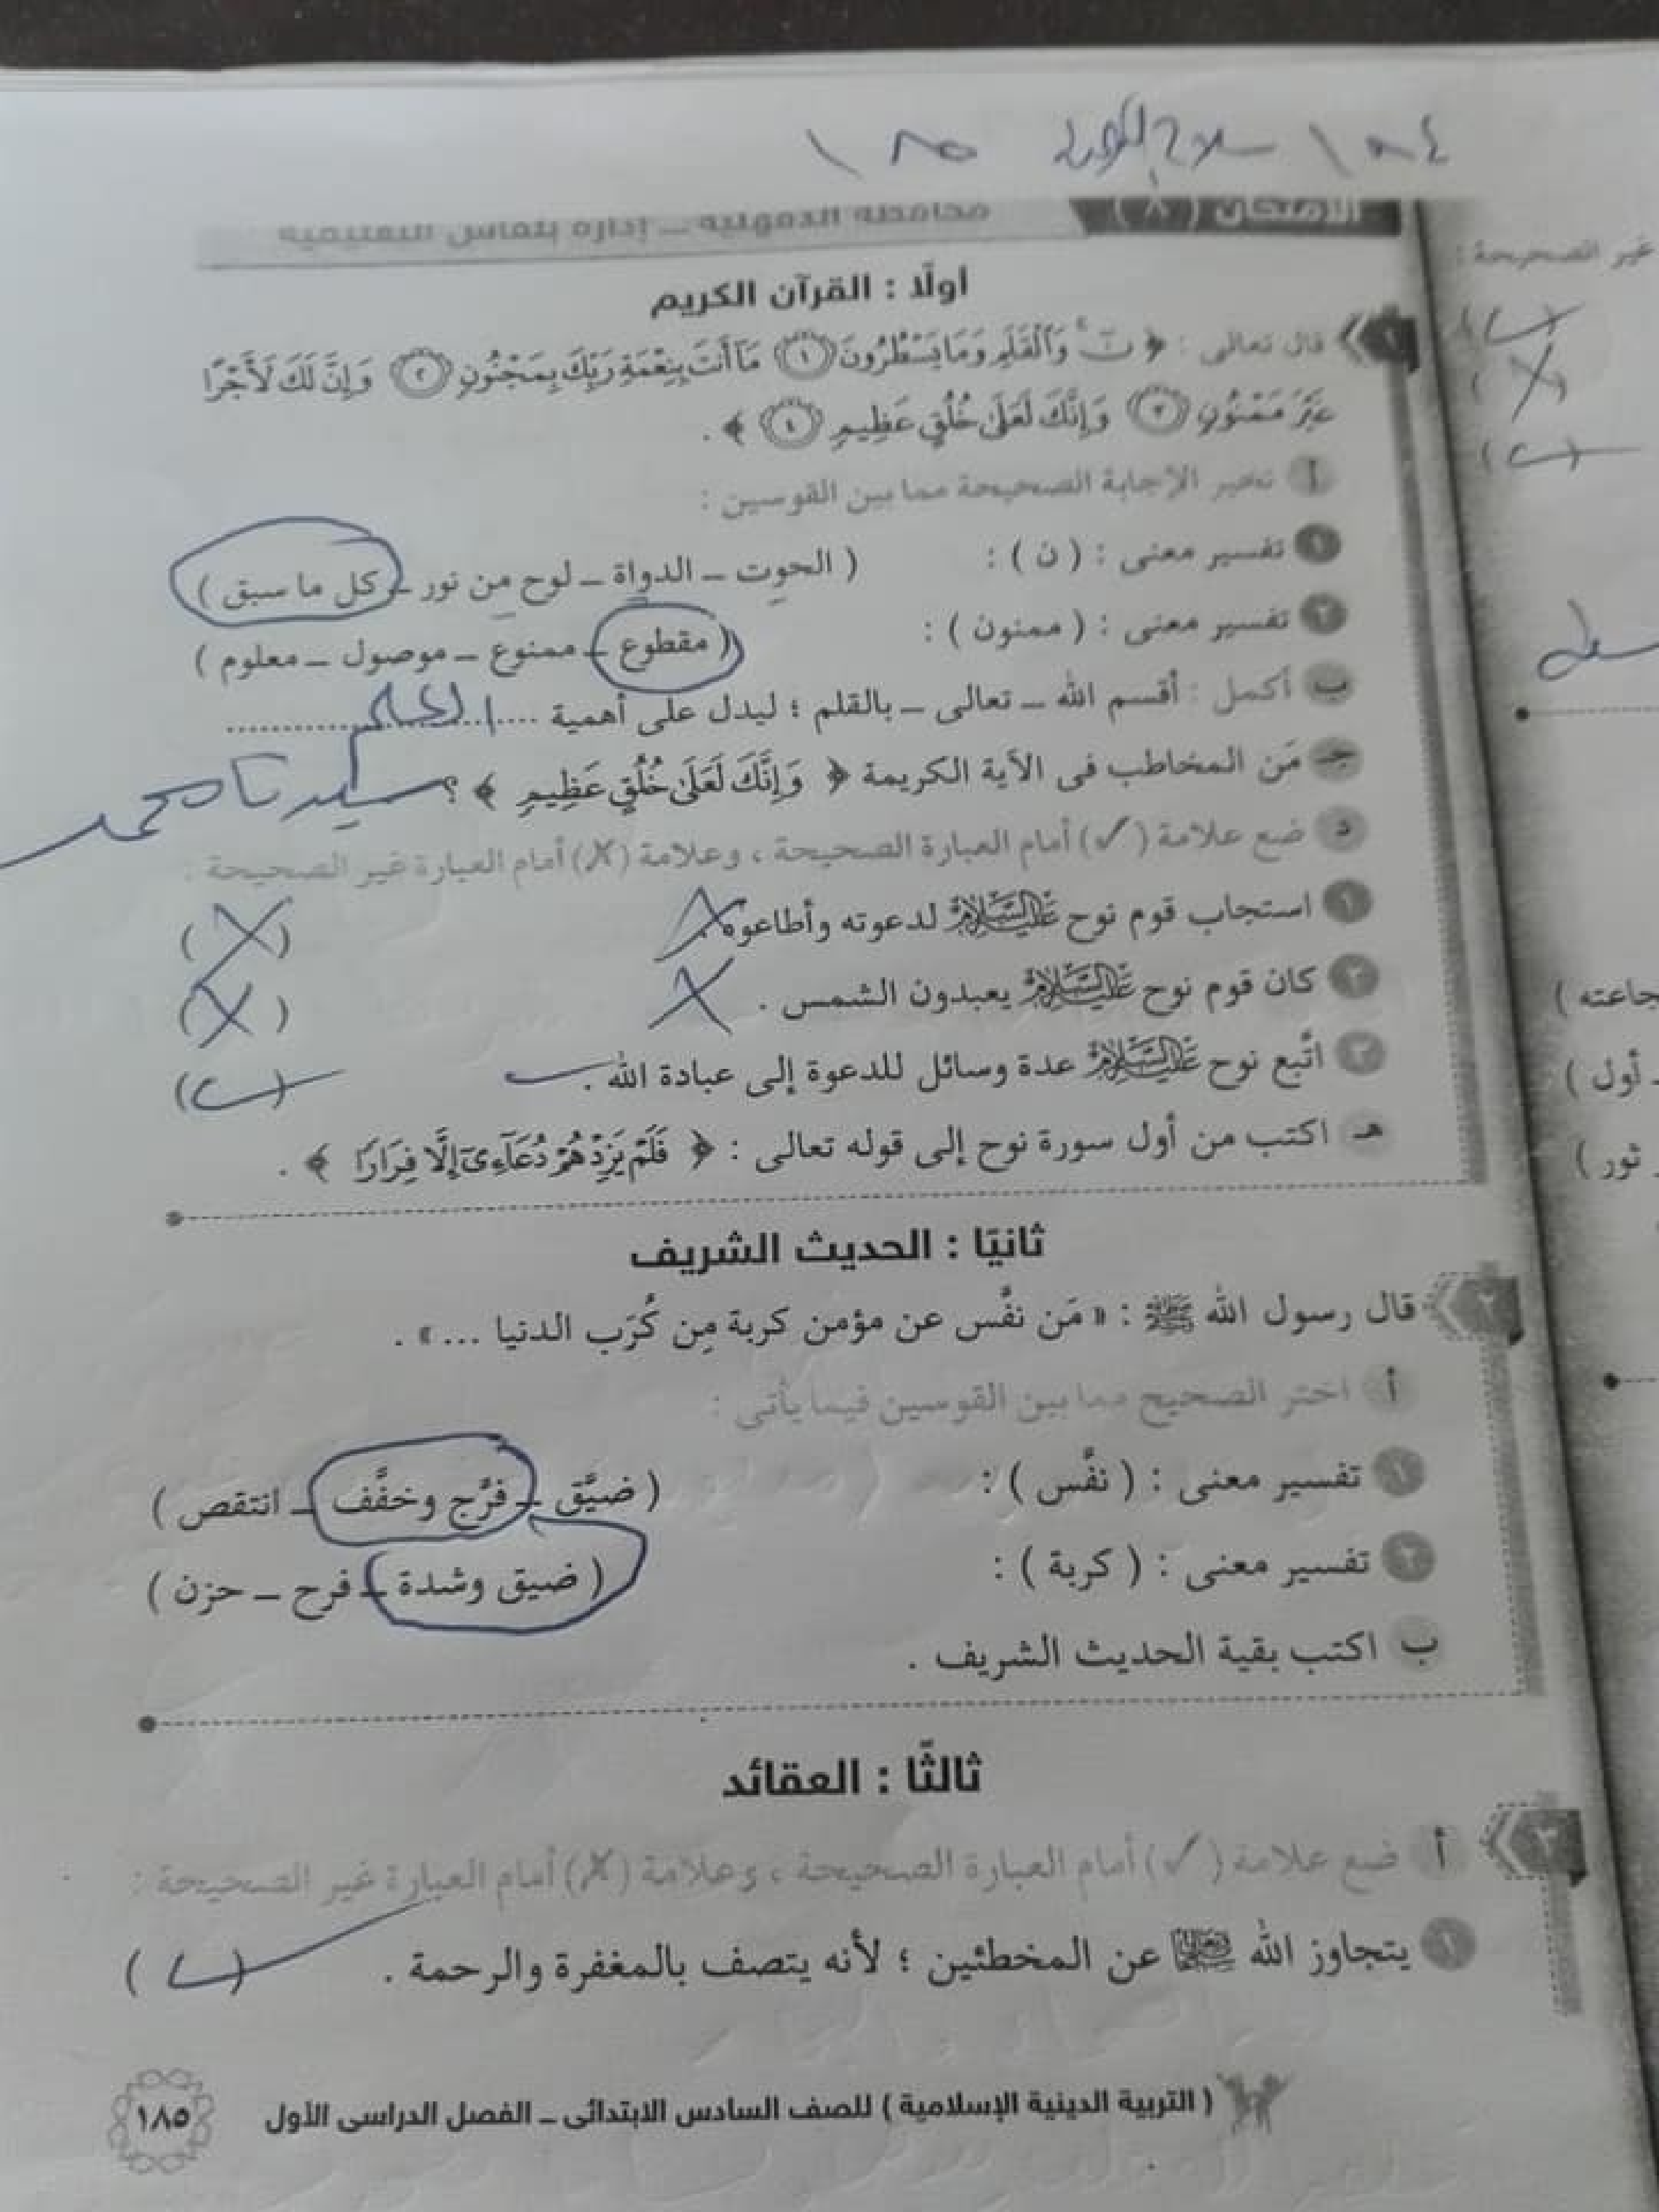 ١٨٤ سلاح التلميذ ١٨٥
الامتحان (٨) محافظة الدقهلية – إدارة بلقاس التعليمية
أولًا : القرآن الكريم
١ قال تعالى : ﴿ نٓ وَٱلْقَلَمِ وَمَا يَسْطُرُونَ ۝١ مَآ أَنتَ بِنِعْمَةِ رَبِّكَ بِمَجْنُونٍ ۝٢ وَإِنَّ لَكَ لَأَجْرًا
غَيْرَ مَمْنُونٍ ۝٣ وَإِنَّكَ لَعَلَىٰ خُلُقٍ عَظِيمٍ ۝٤ ﴾ .
أ تخير الإجابة الصحيحة مما بين القوسين :
١ تفسير معنى : ( ن ) : ( الحوت – الدواة – لوح من نور – كل ما سبق )
٢ تفسير معنى : ( ممنون ) : ( مقطوع – ممنوع – موصول – معلوم )
ب أكمل : أقسم الله – تعالى – بالقلم ؛ ليدل على أهمية .... العلم ....................
جـ مَن المخاطب فى الآية الكريمة ﴿ وَإِنَّكَ لَعَلَىٰ خُلُقٍ عَظِيمٍ ﴾ ؟ سيدنا محمد
د ضع علامة (✓) أمام العبارة الصحيحة ، وعلامة (✗) أمام العبارة غير الصحيحة :
١ استجاب قوم نوح عَلَيْهِ السَّلَامُ لدعوته وأطاعوه . ✗ ( ✗ )
٢ كان قوم نوح عَلَيْهِ السَّلَامُ يعبدون الشمس . ✗ ( ✗ )
٣ اتَّبع نوح عَلَيْهِ السَّلَامُ عدة وسائل للدعوة إلى عبادة الله . ✓ ( ✓ )
هـ اكتب من أول سورة نوح إلى قوله تعالى : ﴿ فَلَمْ يَزِدْهُمْ دُعَآءِىٓ إِلَّا فِرَارًا ﴾ .
ثانيًا : الحديث الشريف
٢ قال رسول الله ﷺ : « مَن نفَّس عن مؤمن كربة مِن كُرَب الدنيا ... » .
أ اختر الصحيح مما بين القوسين فيما يأتى :
١ تفسير معنى : ( نفَّس ) : ( ضيَّق – فرَّج وخفَّف – انتقص )
٢ تفسير معنى : ( كربة ) : ( ضيق وشدة – فرح – حزن )
ب اكتب بقية الحديث الشريف .
ثالثًا : العقائد
٣ أ ضع علامة (✓) أمام العبارة الصحيحة ، وعلامة (✗) أمام العبارة غير الصحيحة :
١ يتجاوز الله تعالى عن المخطئين ؛ لأنه يتصف بالمغفرة والرحمة . ( ✓ )
( التربية الدينية الإسلامية ) للصف السادس الابتدائى – الفصل الدراسى الأول ١٨٥
غير الصحيحة :
( ✓ )
( ✗ )
( ✓ )
أول )
ثور )